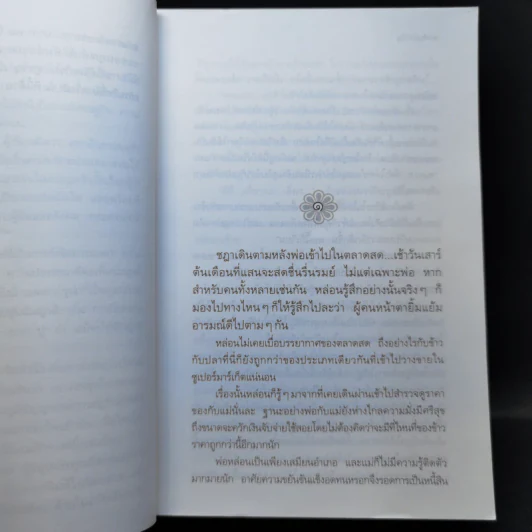 ๑
ชฎาเดินตามหลังพ่อเข้าไปในตลาดสด...เช้าวันเสาร์
ต้นเดือนที่แสนจะสดชื่นรื่นรมย์ ไม่แต่เฉพาะพ่อ หาก
สำหรับคนทั้งหลายเช่นกัน หล่อนรู้สึกอย่างนั้นจริงๆ ก็
มองไปทางไหนๆ ก็ให้รู้สึกไปละว่า ผู้คนหน้าตายิ้มแย้ม
อารมณ์ดีไปตามๆ กัน
หล่อนไม่เคยเบื่อบรรยากาศของตลาดสด ถึงอย่างไรกับข้าว
กับปลาที่นี่ก็ยังถูกกว่าของประเภทเดียวกันที่เข้าไปวางขายใน
ซูเปอร์มาร์เก็ตแน่นอน
เรื่องนั้นหล่อนก็รู้ๆ มาจากที่เคยเดินผ่านเข้าไปสำรวจดูราคา
ของกับแม่นั่นละ ฐานะอย่างพ่อกับแม่ยังห่างไกลความมั่งมีศรีสุข
ถึงขนาดจะควักเงินจับจ่ายใช้สอยโดยไม่ต้องคิดว่าจะมีที่ไหนที่ของข้าว
ราคาถูกกว่านี้อีกมากนัก
พ่อหล่อนเป็นเพียงเสมียนอำเภอ และแม่ก็ไม่มีความรู้ติดตัว
มากมายนัก อาศัยความขยันขันแข็งอดทนหรอกจึงรอดการเป็นหนี้สิน